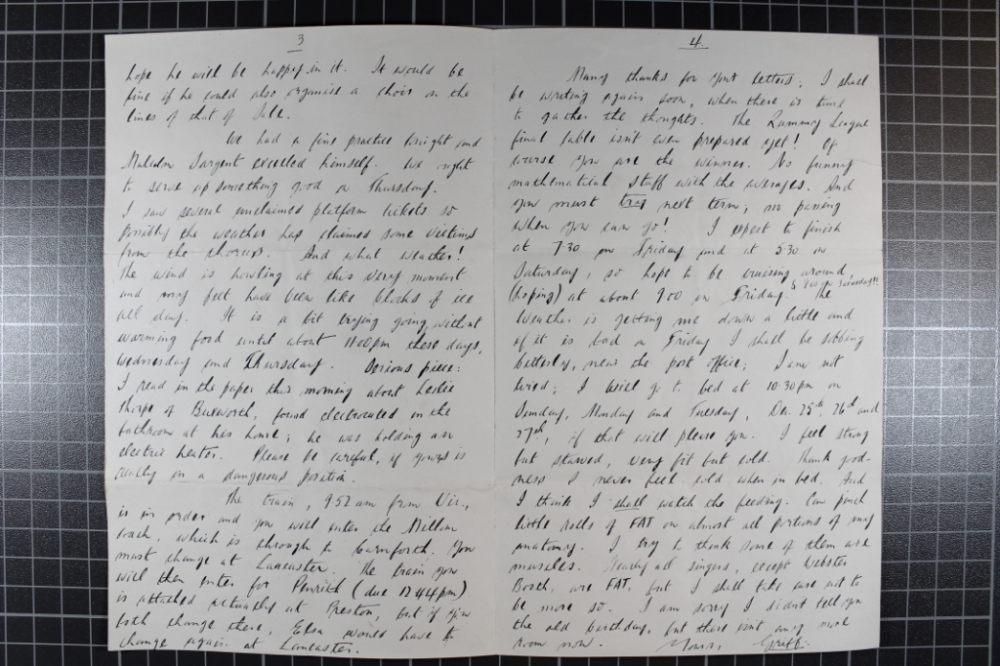 3
hope he will be happy in it. It would be
fine if he could also organise a choir on the
lines of that of Sale.
We had a fine practice tonight and
Malcolm Sargent excelled himself. We ought
to serve up something good on Thursday.
I saw several unclaimed platform tickets so
possibly the weather has claimed some victims
from the chorus. And what weather!
The wind is howling at this very moment
and my feet have been like blocks of ice
all day. It is a bit trying going without
warming food until about 11.00pm these days,
Wednesday and Thursday. Serious piece:
I read in the paper this morning about Leslie
Thorpe of Buxworth, found electrocuted in the
bathroom at his home; he was holding an
electric heater. Please be careful, if yours is
really in a dangerous position.
The train, 9.52 am from Vic.,
is in order and you will enter the
coach, which is through to Carnforth. You
must change at Lancaster. The train you
will then enter for Penrith (due 12.44pm)
is attached actually at Preston, but if you
both change there, Elsa would have to
change again at Lancaster.
4.
Many thanks for your letters; I shall
be writing again soon, when there is time
to gather the thoughts. The Rummy League
final table isn't even prepared yet! Of
course you are the winner. No funny
mathematical stuff with the averages. And
you must try next term; no passing
when you can go! I expect to finish
at 7.30 on Friday and at 5.30 on
Saturday, so hope to be cruising around
(hoping) at about 9.00 on Friday. The
& on Saturday!!
weather is getting me down a little and
if it is bad on Friday I shall be sobbing
bitterly, near the post office; I am not
tired; I will go to bed at 10.30pm on
Sunday, Monday and Tuesday, Dec. 25th, 26th and
27th, if that will please you. I feel strong
but starved, very fit but cold. Thank good-
ness I never feel cold when in bed. And
I think I shall watch the feeding. Can pinch
little rolls of FAT on almost all portions of my
anatomy. I try to think some of them are
muscles. Nearly all singers, except Webster
Booth, are FAT, but I shall take care not to
be more so. I am sorry I didn't tell you
the old birthday, but there isn't any more
room now. Yours, Griff.